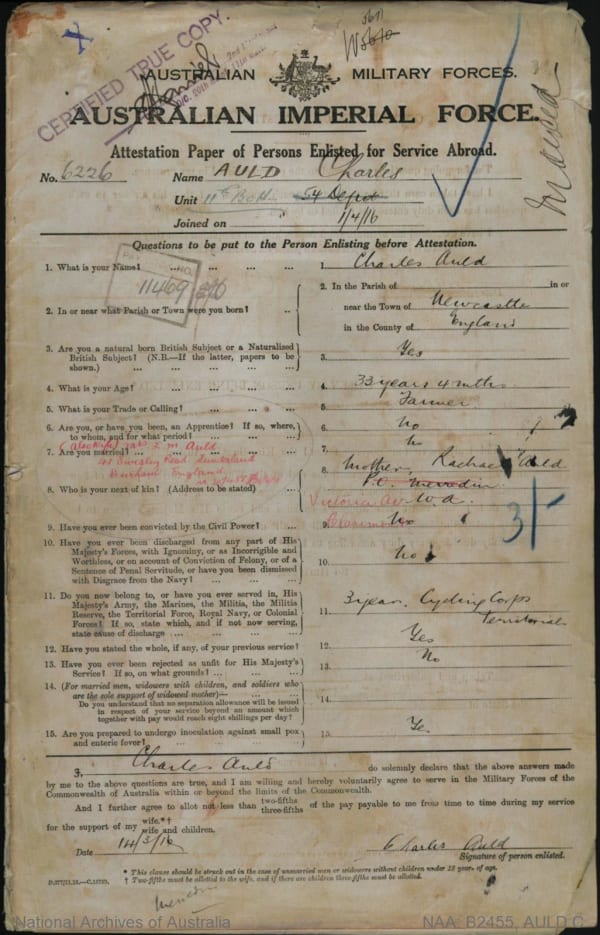 CERTIFIED TRUE COPY.
5671
W5610
AUSTRALIAN MILITARY FORCES.
AUSTRALIAN IMPERIAL FORCE.
Attestation Paper of Persons Enlisted for Service Abroad.
No. 6226 Name AULD Charles
Unit 11th Batt. 54 Depot
Joined on 1/4/16
Questions to be put to the Person Enlisting before Attestation.
PAY NO.
11469
1. What is your Name? ... ... ... ... 1. Charles Auld
2. In or near what Parish or Town were you born? .. 2. In the Parish of in or
near the Town of Newcastle
in the County of England
3. Are you a natural born British Subject or a Naturalized
British Subject? (N.B.—If the latter, papers to be
shown.) ... ... ... ... ... 3. Yes
4. What is your Age? ... ... ... ... 4. 33 years 4 mths
5. What is your Trade or Calling? ... ... ... 5. Farmer
6. Are you, or have you been, an Apprentice? If so, where,
to whom, and for what period? ... ... ... 6. No
7. Are you married? ... ... ... ... 7. No
Auld
Sunderland
Durham England
8. Who is your next of kin? (Address to be stated) ... 8. Mother, Rachael Auld
P.O. Merredin
Victoria Av. W.A.
Claremont
9. Have you ever been convicted by the Civil Power? ... 9. No
10. Have you ever been discharged from any part of His
Majesty's Forces, with Ignominy, or as Incorrigible and
Worthless, or on account of Conviction of Felony, or of a
Sentence of Penal Servitude, or have you been dismissed
with Disgrace from the Navy? ... ... ... 10. No
11. Do you now belong to, or have you ever served in, His
Majesty's Army, the Marines, the Militia, the Militia
Reserve, the Territorial Force, Royal Navy, or Colonial
Forces? If so, state which, and if not now serving,
state cause of discharge ... ... ... ... 11. 3 years. Cycling Corps
Territorials
12. Have you stated the whole, if any, of your previous service? 12. Yes
13. Have you ever been rejected as unfit for His Majesty's
Service? If so, on what grounds? ... ... ... 13. No
14. (For married men, widowers with children, and soldiers who
are the sole support of widowed mother)— ... ...
Do you understand that no separation allowance will be issued
in respect of your service beyond an amount which
together with pay would reach eight shillings per day? 14.
15. Are you prepared to undergo inoculation against small pox
and enteric fever? ... ... ... ... 15. Yes
I, Charles Auld do solemnly declare that the above answers made
by me to the above questions are true, and I am willing and hereby voluntarily agree to serve in the Military Forces of the
Commonwealth of Australia within or beyond the limits of the Commonwealth.
And I further agree to allot not less than two-fifths three-fifths of the pay payable to me from time to time during my service
for the support of my wife.*† wife and children.
Date 14/3/16 Charles Auld
Signature of person enlisted.
* This clause should be struck out in the case of unmarried men or widowers without children under 18 years of age.
† Two-fifths must be allotted to the wife, and if there are children three-fifths must be allotted.
National Archives of Australia NAA: B2455, AULD C